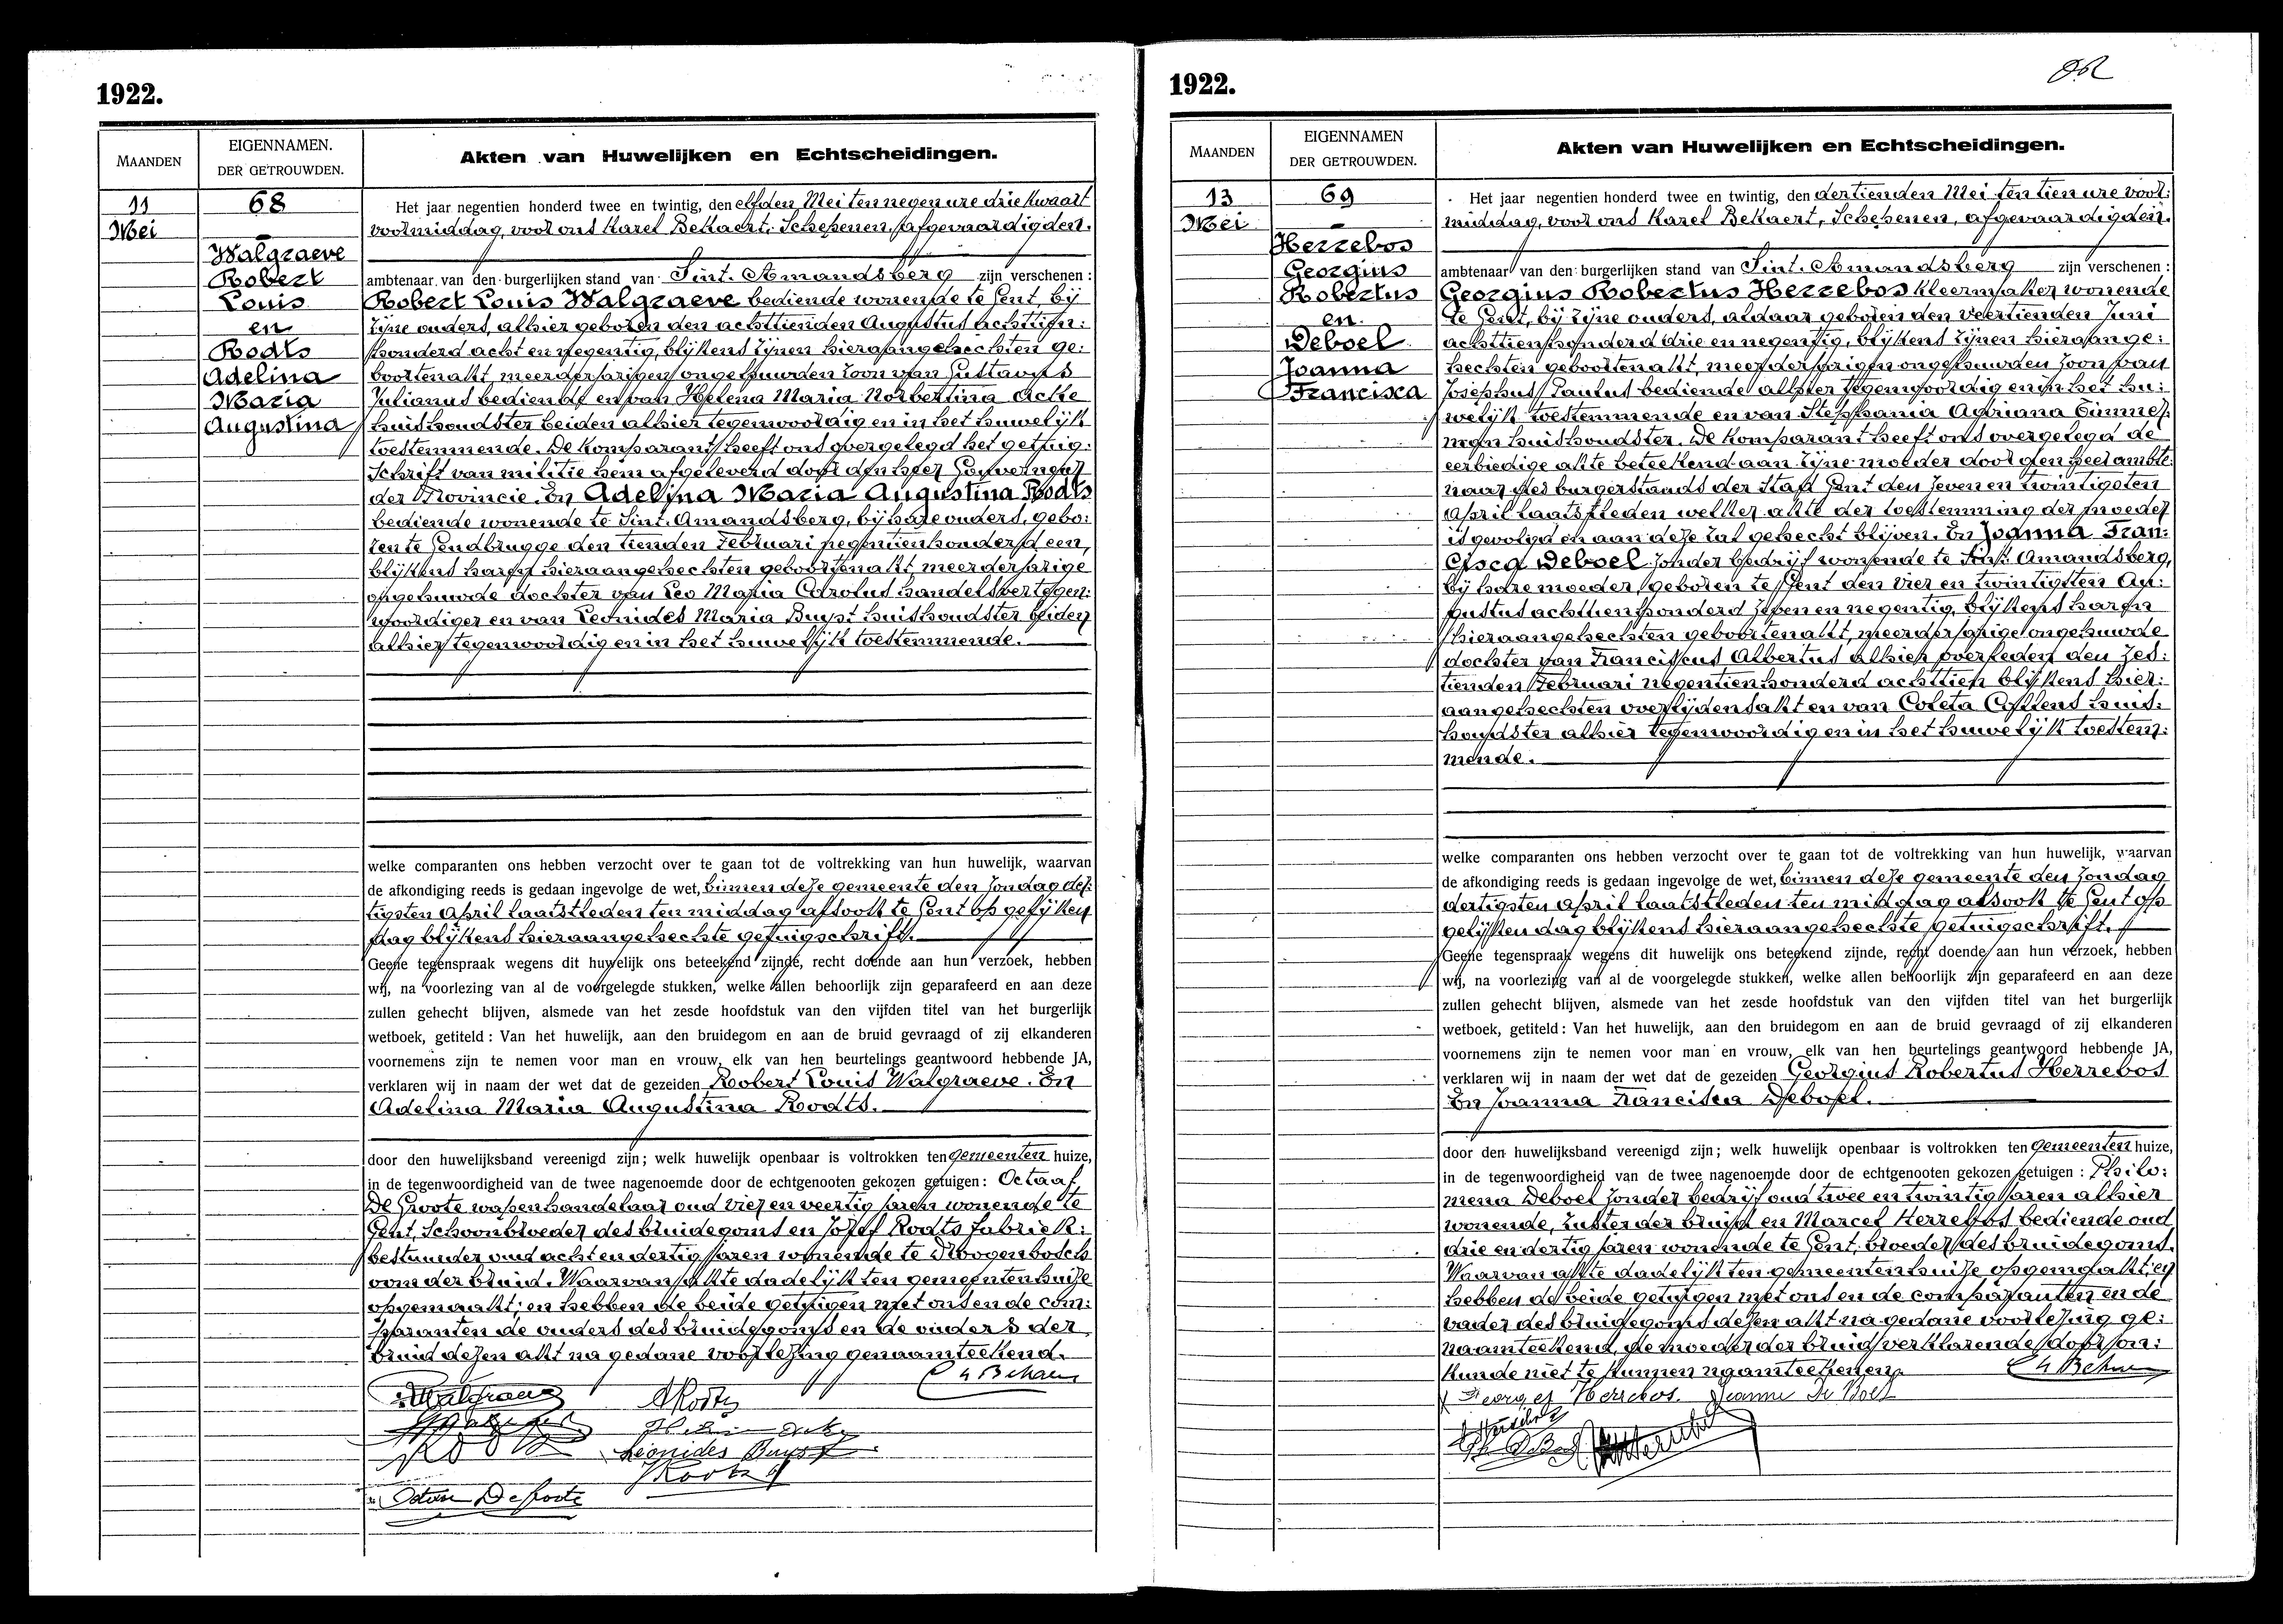 1922.
MAANDEN
EIGENNAMEN.
DER GETROUWDEN.
Akten van Huwelijken en Echtscheidingen.
11
Mei
68
Walgraeve
Robert
Louis
en
Rodts
Adelina
Maria
Augustina
Het jaar negentien honderd twee en twintig, den elfden Mei ten negen ure drie kwaart
voormiddag, voor ons Karel Bekaert, Schepenen, afgevaardigden.
ambtenaar van den burgerlijken stand van Sint-Amandsberg zijn verschenen:
Robert Louis Walgraeve bediende wonende te Gent, bij
zijne ouders, alhier geboren den achttienden Augustus achttien:
honderd acht en negentig, blijkens zijnen hieraangehechten ge:
boortenakt, meerderjarigen ongehuwden zoon van Gustavus
Julianus bediende en van Helena Maria Norbertina Acke
huishoudster beiden alhier tegenwoordig en in het huwelijk
toestemmende. De komparant heeft ons overgelegd het getuig:
schrift van militie hem afgeleverd door den heer Gouverneur
der Provincie. En Adelina Maria Augustina Rodts
bediende wonende te Sint-Amandsberg, bij hare ouders, gebo:
ren te Gendbrugge den tienden Februari negentienhonderd een,
blijkens haren hieraangehechten geboortenakt meerderjarige
ongehuwde dochter van Leo Maria Carolus handelsvertegen:
woordiger en van Leonides Maria Buyst huishoudster beiden
alhier tegenwoordig en in het huwelijk toestemmende.
welke comparanten ons hebben verzocht over te gaan tot de voltrekking van hun huwelijk, waarvan
de afkondiging reeds is gedaan ingevolge de wet, binnen deze gemeente den zondag der:
tigsten April laatstleden ten middag alsook te Gent op gelijken
dag blijkens hieraangehechte getuigschrift.
Geene tegenspraak wegens dit huwelijk ons beteekend zijnde, recht doende aan hun verzoek, hebben
wij, na voorlezing van al de voorgelegde stukken, welke allen behoorlijk zijn geparafeerd en aan deze
zullen gehecht blijven, alsmede van het zesde hoofdstuk van den vijfden titel van het burgerlijk
wetboek, getiteld: Van het huwelijk, aan den bruidegom en aan de bruid gevraagd of zij elkanderen
voornemens zijn te nemen voor man en vrouw, elk van hen beurtelings geantwoord hebbende JA,
verklaren wij in naam der wet dat de gezeiden Robert Louis Walgraeve. En
Adelina Maria Augustina Rodts.
door den huwelijksband vereenigd zijn; welk huwelijk openbaar is voltrokken ten gemeenten huize,
in de tegenwoordigheid van de twee nagenoemde door de echtgenooten gekozen getuigen: Octaaf
De Groote wapenhandelaar oud vier en veertig jaren wonende te
Gent, Schoonbroeder des bruidegoms en Jozef Rodts fabriek:
bestuurder oud acht en dertig jaren wonende te Droogenbosch
oom der bruid. Waarvan akte dadelijk ten gemeentenhuize
opgemaakt; en hebben de beide getuigen met ons en de com:
paranten de ouders des bruidegoms en de ouders der
bruid dezen akt na gedane voorlezing genaamteekend.
Leonides Buyst
1922.
MAANDEN
EIGENNAMEN
DER GETROUWDEN.
Akten van Huwelijken en Echtscheidingen.
13
Mei
69
Herrebos
Georgius
Robertus
en
Deboel
Joanna
Francisca
Het jaar negentien honderd twee en twintig, den dertienden Mei ten tien ure voor:
middag, voor ons Karel Bekaert, Schepenen, afgevaardigden.
ambtenaar van den burgerlijken stand van Sint-Amandsberg zijn verschenen:
Georgius Robertus Herrebos kleermaker wonende
te Gent, bij zijne ouders, aldaar geboren den veertienden Juni
achttienhonderd drie en negentig, blijkens zijnen hieraange:
hechten geboortenakt, meerderjarigen ongehuwden zoon van
Josephus Paulus bediende alhier tegenwoordig en in het hu:
welijk toestemmende en van Stephania Adriana Timmer:
man huishoudster. De komparant heeft ons overgelegd de
eerbiedige akte beteekend aan zijne moeder door den heer ambte:
naar des burgerstands der Stad Gent den zeven en twintigsten
April laatstleden welker akte der toestemming der moeder
is gevolgd en aan deze zal gehecht blijven. En Joanna Fran:
cisca Deboel zonder bedrijf wonende te Sint-Amandsberg,
bij hare moeder, geboren te Gent den vier en twintigsten Au:
gustus achttienhonderd zeven en negentig, blijkens haren
hieraangehechten geboortenakt, meerderjarige ongehuwde
dochter van Franciscus Albertus alhier overleden den zes:
tienden Februari negentienhonderd achttien blijkens hier:
aangehechten overlijdensakt en van Coleta huis:
houdster alhier tegenwoordig en in het huwelijk toestem:
mende.
welke comparanten ons hebben verzocht over te gaan tot de voltrekking van hun huwelijk, waarvan
de afkondiging reeds is gedaan ingevolge de wet, binnen deze gemeente den zondag
dertigsten April laatstleden ten middag alsook te Gent op
gelijken dag blijkens hieraangehechte getuigschrift.
Geene tegenspraak wegens dit huwelijk ons beteekend zijnde, recht doende aan hun verzoek, hebben
wij, na voorlezing van al de voorgelegde stukken, welke allen behoorlijk zijn geparafeerd en aan deze
zullen gehecht blijven, alsmede van het zesde hoofdstuk van den vijfden titel van het burgerlijk
wetboek, getiteld: Van het huwelijk, aan den bruidegom en aan de bruid gevraagd of zij elkanderen
voornemens zijn te nemen voor man en vrouw, elk van hen beurtelings geantwoord hebbende JA,
verklaren wij in naam der wet dat de gezeiden Georgius Robertus Herrebos
En Joanna Francisca Deboel.
door den huwelijksband vereenigd zijn; welk huwelijk openbaar is voltrokken ten gemeenten huize,
in de tegenwoordigheid van de twee nagenoemde door de echtgenooten gekozen getuigen: Philo:
mena Deboel zonder bedrijf oud twee en twintig jaren alhier
wonende, zuster der bruid en Marcel Herrebos bediende oud
drie en dertig jaren wonende te Gent, broeder des bruidegoms.
Waarvan akte dadelijk ten gemeentenhuize opgemaakt; en
hebben de beide getuigen met ons en de comparanten en de
vader des bruidegoms dezen akt na gedane voorlezing ge:
naamteekend, de moeder der bruid verklarende door on:
kunde niet te kunnen naamteekenen.
Georges Herrebos Jeanne De Boel